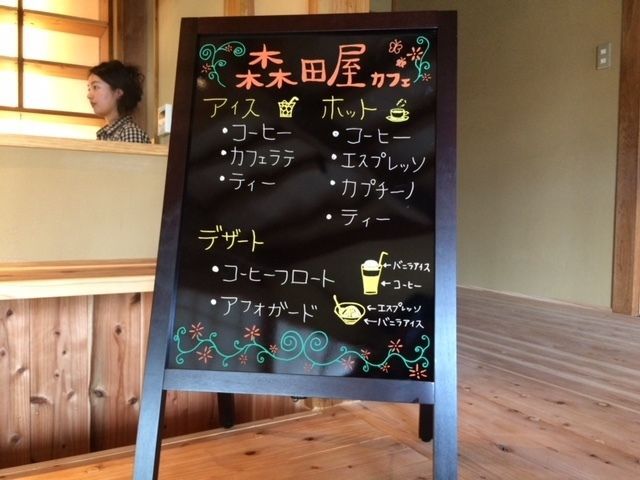 森田屋カフェ
アイス
・コーヒー
・カフェラテ
・ティー
ホット
・コーヒー
・エスプレッソ
・カプチーノ
・ティー
デザート
・コーヒーフロート
←バニラアイス
←コーヒー
・アフォガード
←エスプレッソ
←バニラアイス